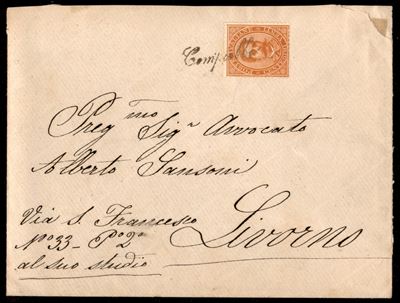 Preg.mo Sigr Avvocato
Alberto Sansoni
Via S. Francesco
No 33 - Po 2o
al suo studio
Livorno